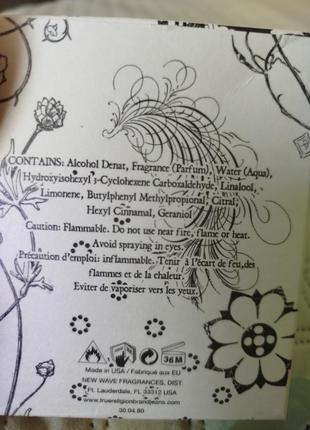 CONTAINS: Alcohol Denat, Fragrance (Parfum), Water (Aqua),
Hydroxyisohexyl 3-Cyclohexene Carboxaldehyde, Linalool,
Limonene, Butylphenyl Methylpropional, Citral,
Hexyl Cinnamal, Geraniol
Caution: Flammable. Do not use near fire, flame or heat.
Avoid spraying in eyes.
Précaution d'emploi: inflammable. Tenir à l'écart de feu,des
flammes et de la chaleur.
Eviter de vaporiser vers les yeux.
36M
Made in USA / Fabriqué aux EU
NEW WAVE FRAGRANCES, DIST.
Ft. Lauderdale, FL 33312 USA
www.truereligionbrandjeans.com
30.04.80